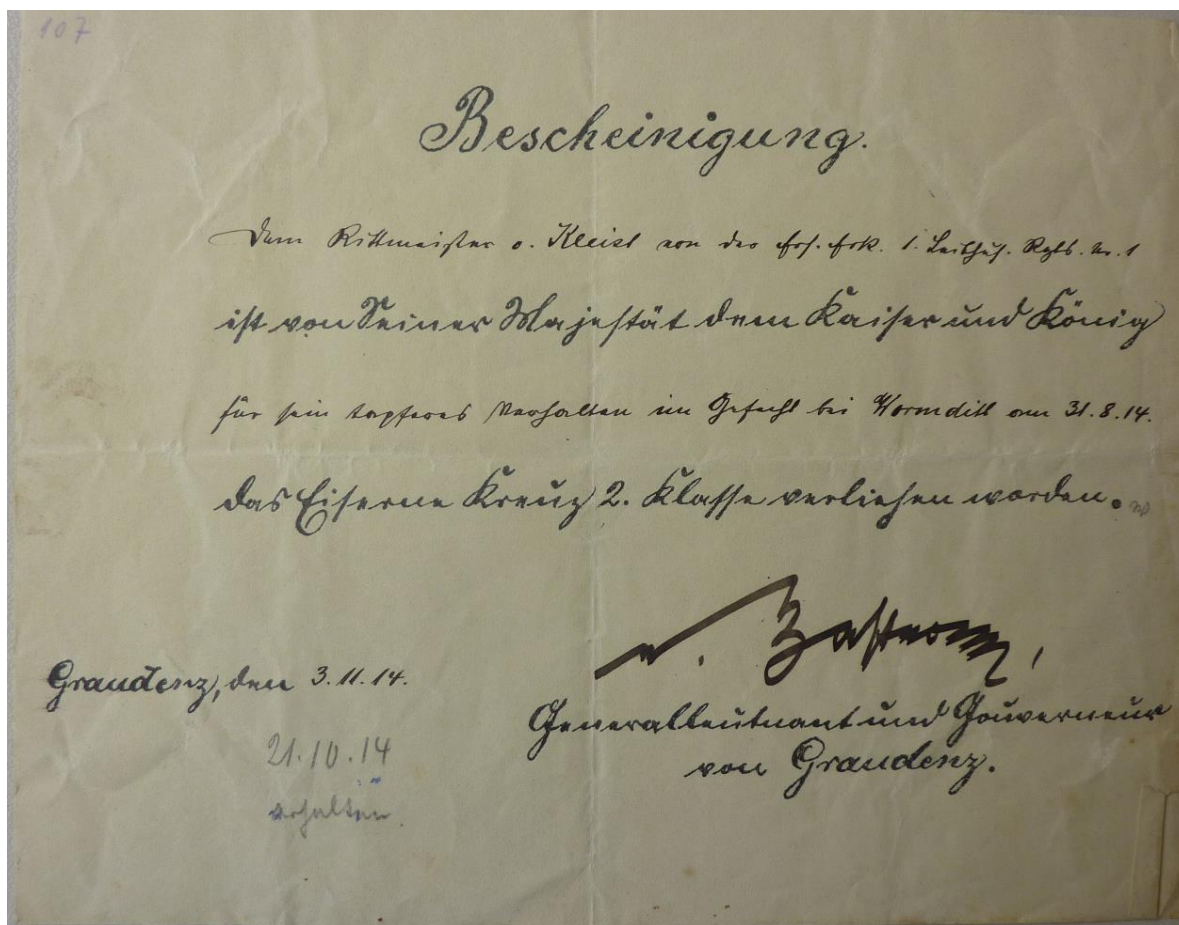 107
Bescheinigung.
Dem Rittmeister v. Kleist von der Ers. Esk. 1. Leibhus. Rgts. Nr. 1
ist von Seiner Majestät dem Kaiser und König
für sein tapferes Verhalten im Gefecht bei Wormditt am 31.8.14.
das Eiserne Kreuz 2. Klasse verliehen worden.
v. Zastrow,
Graudenz, den 3.11.14.
Generalleutnant und Gouverneur
von Graudenz.
21.10.14
erhalten.